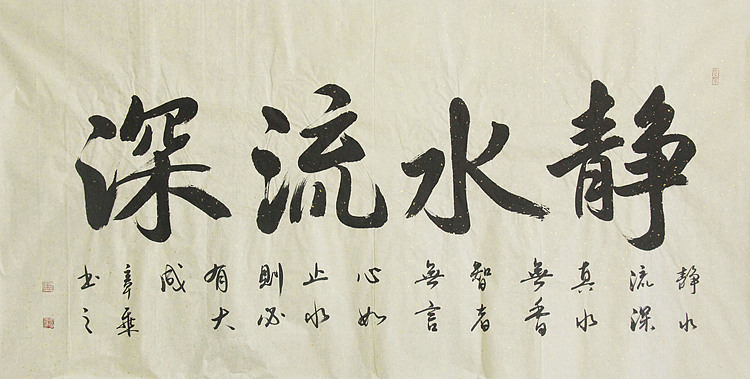 静水流深
静水
流深
真水
無香
智者
無言
心如
止水
則必
有大
成
章華
书之